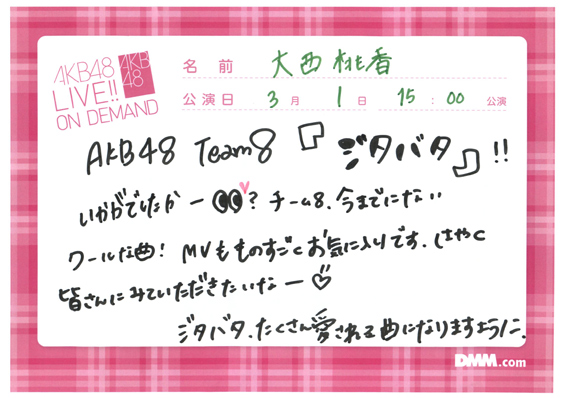 AKB48
LIVE!!
ON DEMAND
AKB
48
名前 大西桃香
公演日 3月1日 15:00 公演
AKB48 Team8 『ジタバタ』!!
いかがでしたかー?チーム8、今までにない
クールな曲! MVもものすごくお気に入りです。はやく
皆さんにみていただきたいなー
ジタバタ、たくさん愛される曲になりますように。
DMM.com